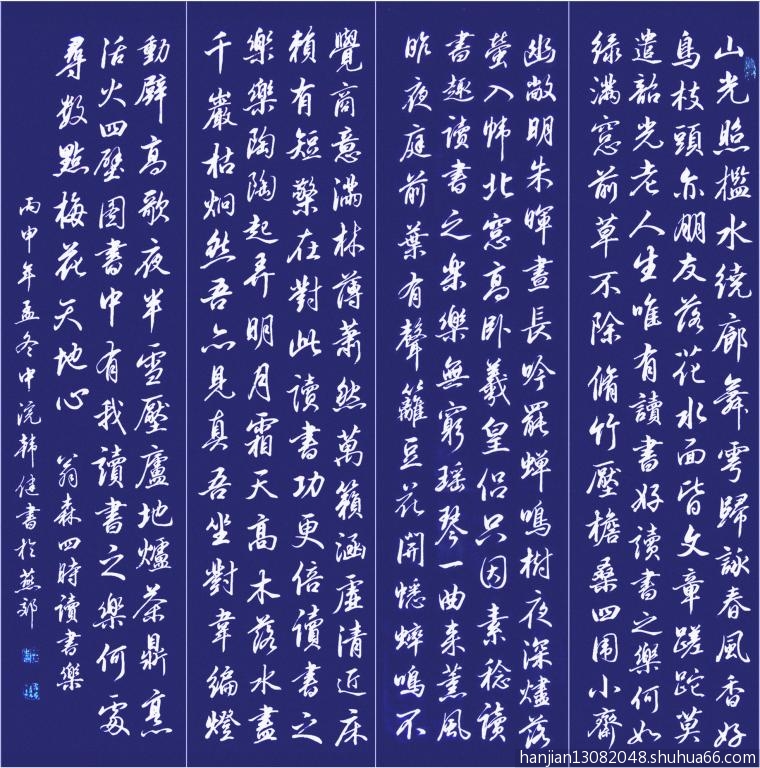 山光照檻水繞廊舞雩歸詠春風香好
鳥枝頭亦朋友落花水面皆文章蹉跎莫
遣韶光老人生唯有讀書好讀書之樂何如
綠滿窓前草不除脩竹壓檐桑四围小齋
幽敞明朱暉晝長吟罷蝉鳴樹夜深燼落
螢入帏北窓高卧羲皇侣只因素稔讀
書趣讀書之樂樂無窮瑶琴一曲来薰風
昨夜庭前葉有聲籬豆花開蟋蟀鳴不
覺商意满林薄萧然萬籟涵虚清近床
賴有短檠在對此讀書功更倍讀書之
樂樂陶陶起弄明月霜天高木落水盡
千巖枯炯然吾亦見真吾坐對韋編燈
動壁高歌夜半雪壓廬地爐茶鼎烹
活火四壁圖書中有我讀書之樂何處
尋数點梅花天地心 翁森四時讀書樂
丙申年孟冬中浣韩健書於燕郊
hanjian13082048.shuhua66.com